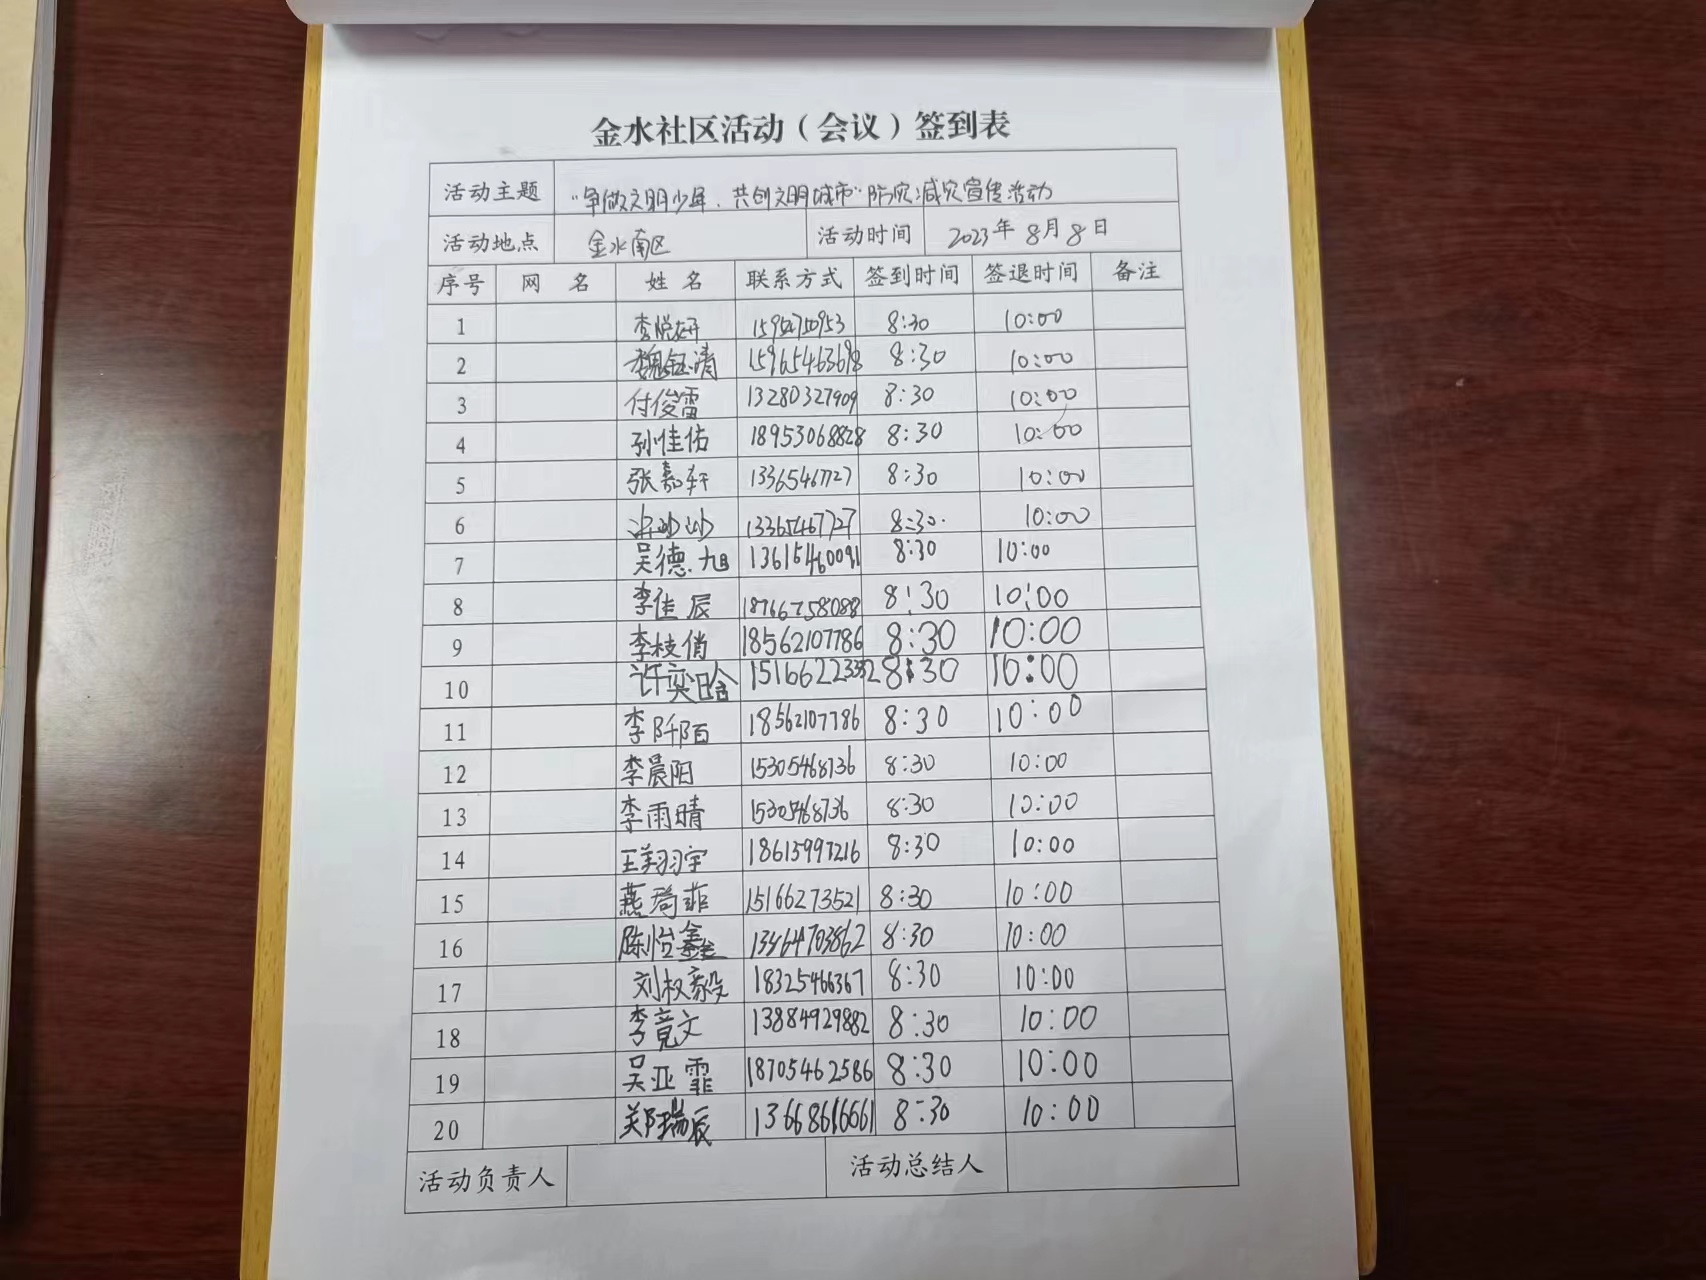 金水社区活动（会议）签到表
活动主题 "争做文明少年，共创文明城市"防灾减灾宣传活动
活动地点 金水南区 活动时间 2023年8月8日
序号 网 名 姓 名 联系方式 签到时间 签退时间 备注
1 李悦妍 8:30 10:00
2 魏钰清 15965463698 8:30 10:00
3 付俊雷 13280327909 8:30 10:00
4 孙佳佑 18953068828 8:30 10:00
5 张嘉轩 13365467727 8:30 10:00
6 13365467727 8:30 10:00
7 吴德旭 13615460091 8:30 10:00
8 李佳辰 18766758088 8:30 10:00
9 李枝俏 18562107786 8:30 10:00
10 许奕晗 8:30 10:00
11 李阡陌 18562107786 8:30 10:00
12 李晨阳 15305468736 8:30 10:00
13 李雨晴 15305468736 8:30 10:00
14 王翔宇 18615997216 8:30 10:00
15 燕琦菲 15166273521 8:30 10:00
16 陈怡鑫 13464703862 8:30 10:00
17 刘权毅 18325466367 8:30 10:00
18 李竟文 13884929882 8:30 10:00
19 吴亚霏 18705462586 8:30 10:00
20 郑瑞辰 13668616661 8:30 10:00
活动负责人 活动总结人